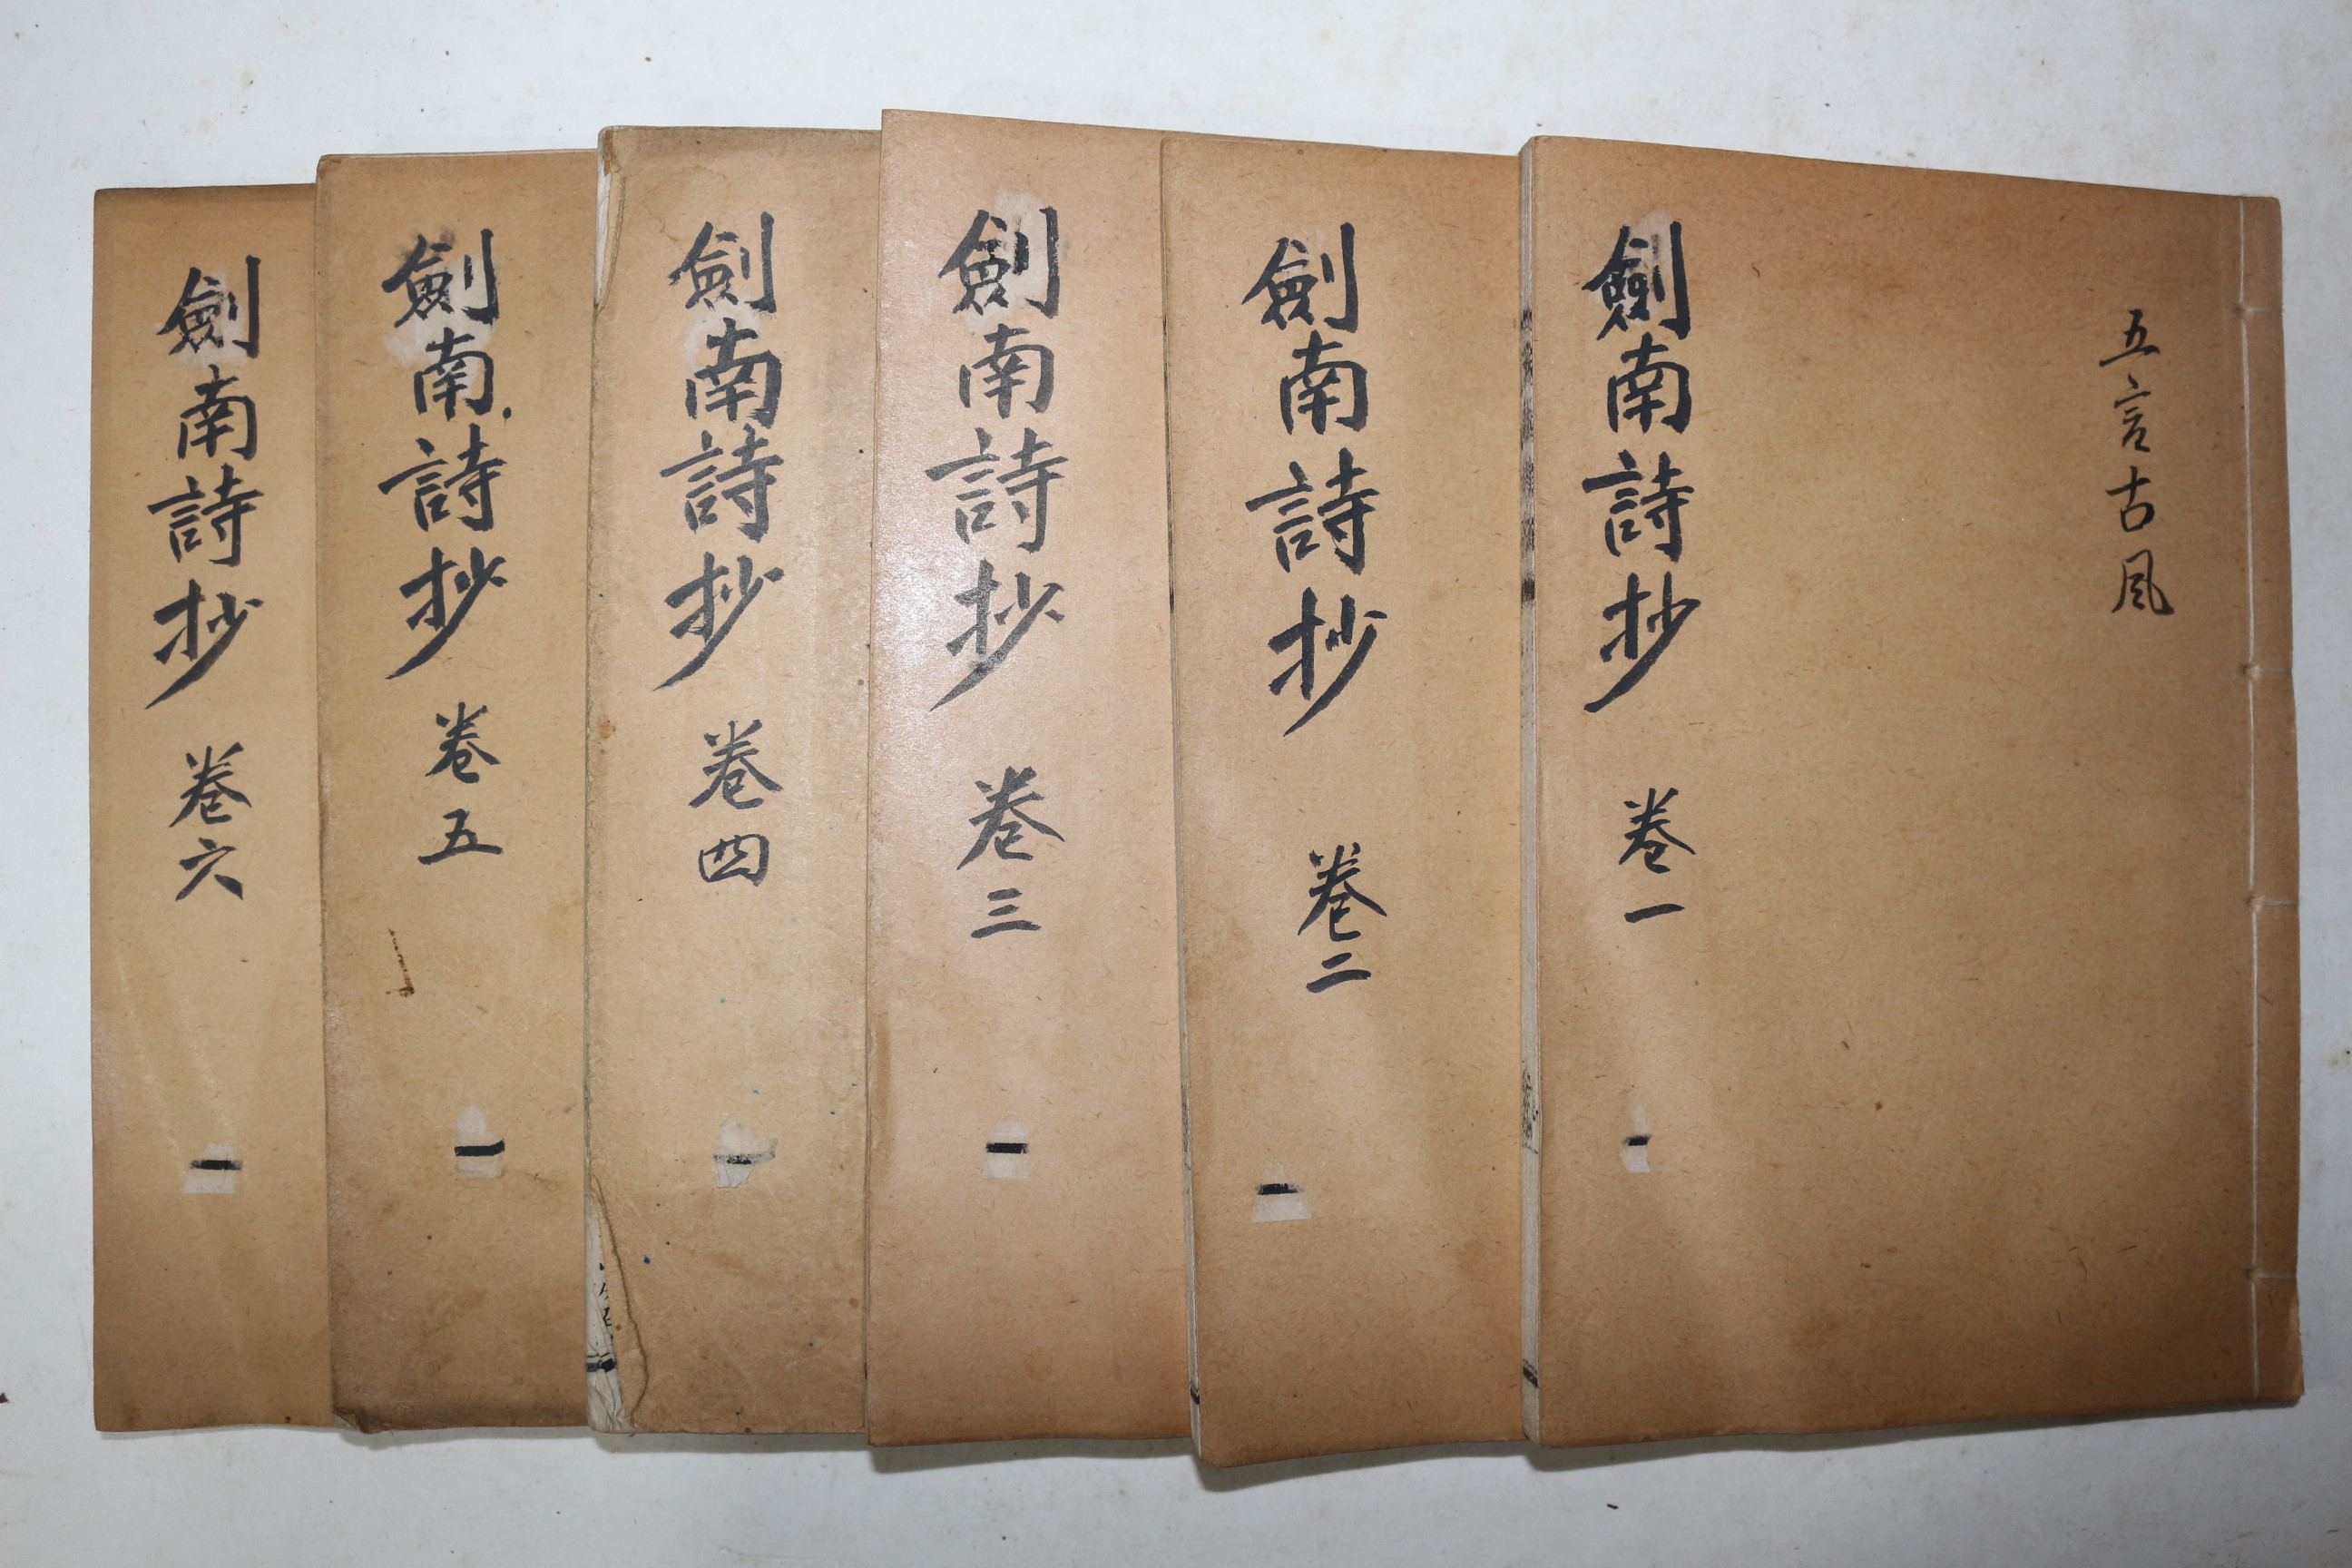 五言古風
劍南詩抄 卷一
一
劍南詩抄 卷二
一
劍南詩抄 卷三
一
劍南詩抄 卷四
一
劍南詩抄 卷五
一
劍南詩抄 卷六
一